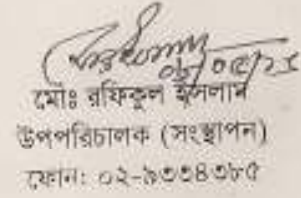 ০৮/০৫/২৫
মোঃ রফিকুল ইসলাম
উপপরিচালক (সংস্থাপন)
ফোন: ০২-৯৩৩৪৩৮৫